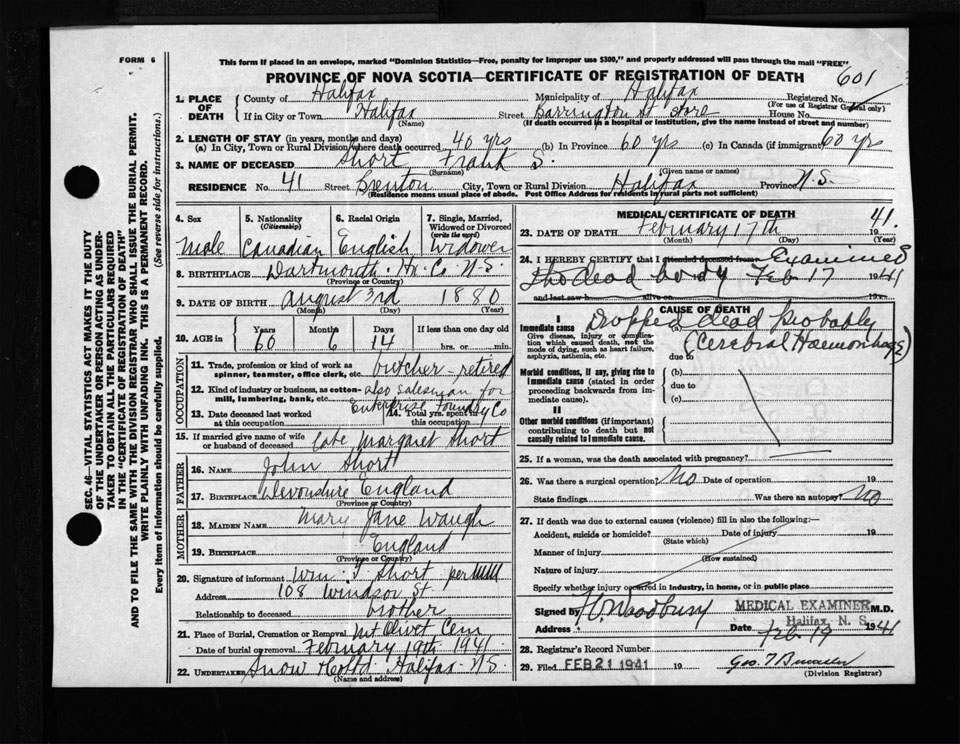 FORM 6
This form if placed in an envelope, marked "Dominion Statistics—Free, penalty for improper use $300," and properly addressed will pass through the mail "FREE"
PROVINCE OF NOVA SCOTIA—CERTIFICATE OF REGISTRATION OF DEATH
601
1. PLACE OF DEATH
County of Halifax Municipality of Halifax Registered No.
(For use of Registrar General only)
If in City or Town Halifax Street Barrington St Store House No.
(Name) (If death occurred in a hospital or institution, give the name instead of street and number)
2. LENGTH OF STAY (in years, months and days)
(a) In City, Town or Rural Division where death occurred 40 yrs (b) In Province 60 yrs (c) In Canada (if immigrant) 60 yrs
3. NAME OF DECEASED Short Frank S.
(Surname) (Given name or names)
RESIDENCE No. 41 Street Brenton City, Town or Rural Division Halifax Province N.S.
(Residence means usual place of abode. Post Office Address for residents in rural parts not sufficient)
4. Sex
male
5. Nationality
(Citizenship)
Canadian
6. Racial Origin
English
7. Single, Married, Widowed or Divorced
(write the word)
Widower
8. BIRTHPLACE Dartmouth. Hx. Co. N.S.
(Province or Country)
9. DATE OF BIRTH august 3rd 1880
(Month) (Day) (Year)
10. AGE in
Years 60
Months 6
Days 14
If less than one day old
hrs. or min.
OCCUPATION
11. Trade, profession or kind of work as spinner, teamster, office clerk, etc. butcher - retired
12. Kind of industry or business, as cotton-mill, lumbering, bank, etc. also salesman for Enterprise Foundry Co
13. Date deceased last worked at this occupation
14. Total yrs. spent in this occupation
15. If married give name of wife or husband of deceased late Margaret Short
FATHER
16. NAME John Short
17. BIRTHPLACE Devonshire England
(Province or Country)
MOTHER
18. MAIDEN NAME Mary Jane Waugh
19. BIRTHPLACE England
(Province or Country)
20. Signature of informant Wm. J. Short per
Address 108 Windsor St.
Relationship to deceased brother
21. Place of Burial, Cremation or Removal Mt. Olivet Cem
Date of burial or removal February 19th 1941
22. UNDERTAKER Snow & Co Ltd. Halifax N.S.
(Name and address)
MEDICAL CERTIFICATE OF DEATH
23. DATE OF DEATH February 17th 1941.
(Month) (Day) (Year)
24. I HEREBY CERTIFY that I attended deceased from Examined
the dead body Feb 17 1941
and last saw h alive on 19
CAUSE OF DEATH
I
Immediate cause
Give disease, injury or complication which caused death, not the mode of dying, such as heart failure, asphyxia, asthenia, etc.
(a) Dropped dead Probably
(Cerebral Haemorrhage)
due to
Morbid conditions, if any, giving rise to immediate cause (stated in order proceeding backwards from immediate cause).
(b)
due to
(c)
II
Other morbid conditions (if important) contributing to death but not causally related to immediate cause.
25. If a woman, was the death associated with pregnancy?
26. Was there a surgical operation? No Date of operation 19
State findings Was there an autopsy? No
27. If death was due to external causes (violence) fill in also the following:—
Accident, suicide or homicide? Date of injury 19
(State which)
Manner of injury
(How sustained)
Nature of injury
Specify whether injury occurred in industry, in home, or in public place
Signed by MEDICAL EXAMINER M.D.
Halifax, N. S.
Address Date Feb. 19 1941
28. Registrar's Record Number
29. Filed FEB 21 1941 19
(Division Registrar)
SEC. 46—VITAL STATISTICS ACT MAKES IT THE DUTY
OF THE UNDERTAKER OR PERSON ACTING AS UNDER-
TAKER TO OBTAIN ALL THE PARTICULARS REQUIRED
IN THE "CERTIFICATE OF REGISTRATION OF DEATH"
AND TO FILE THE SAME WITH THE DIVISION REGISTRAR WHO SHALL ISSUE THE BURIAL PERMIT.
WRITE PLAINLY WITH UNFADING INK. THIS IS A PERMANENT RECORD.
Every item of information should be carefully supplied. (See reverse side for instructions.)